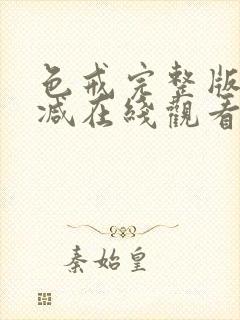 色戒完整版
减在綫觀看
秦始皇